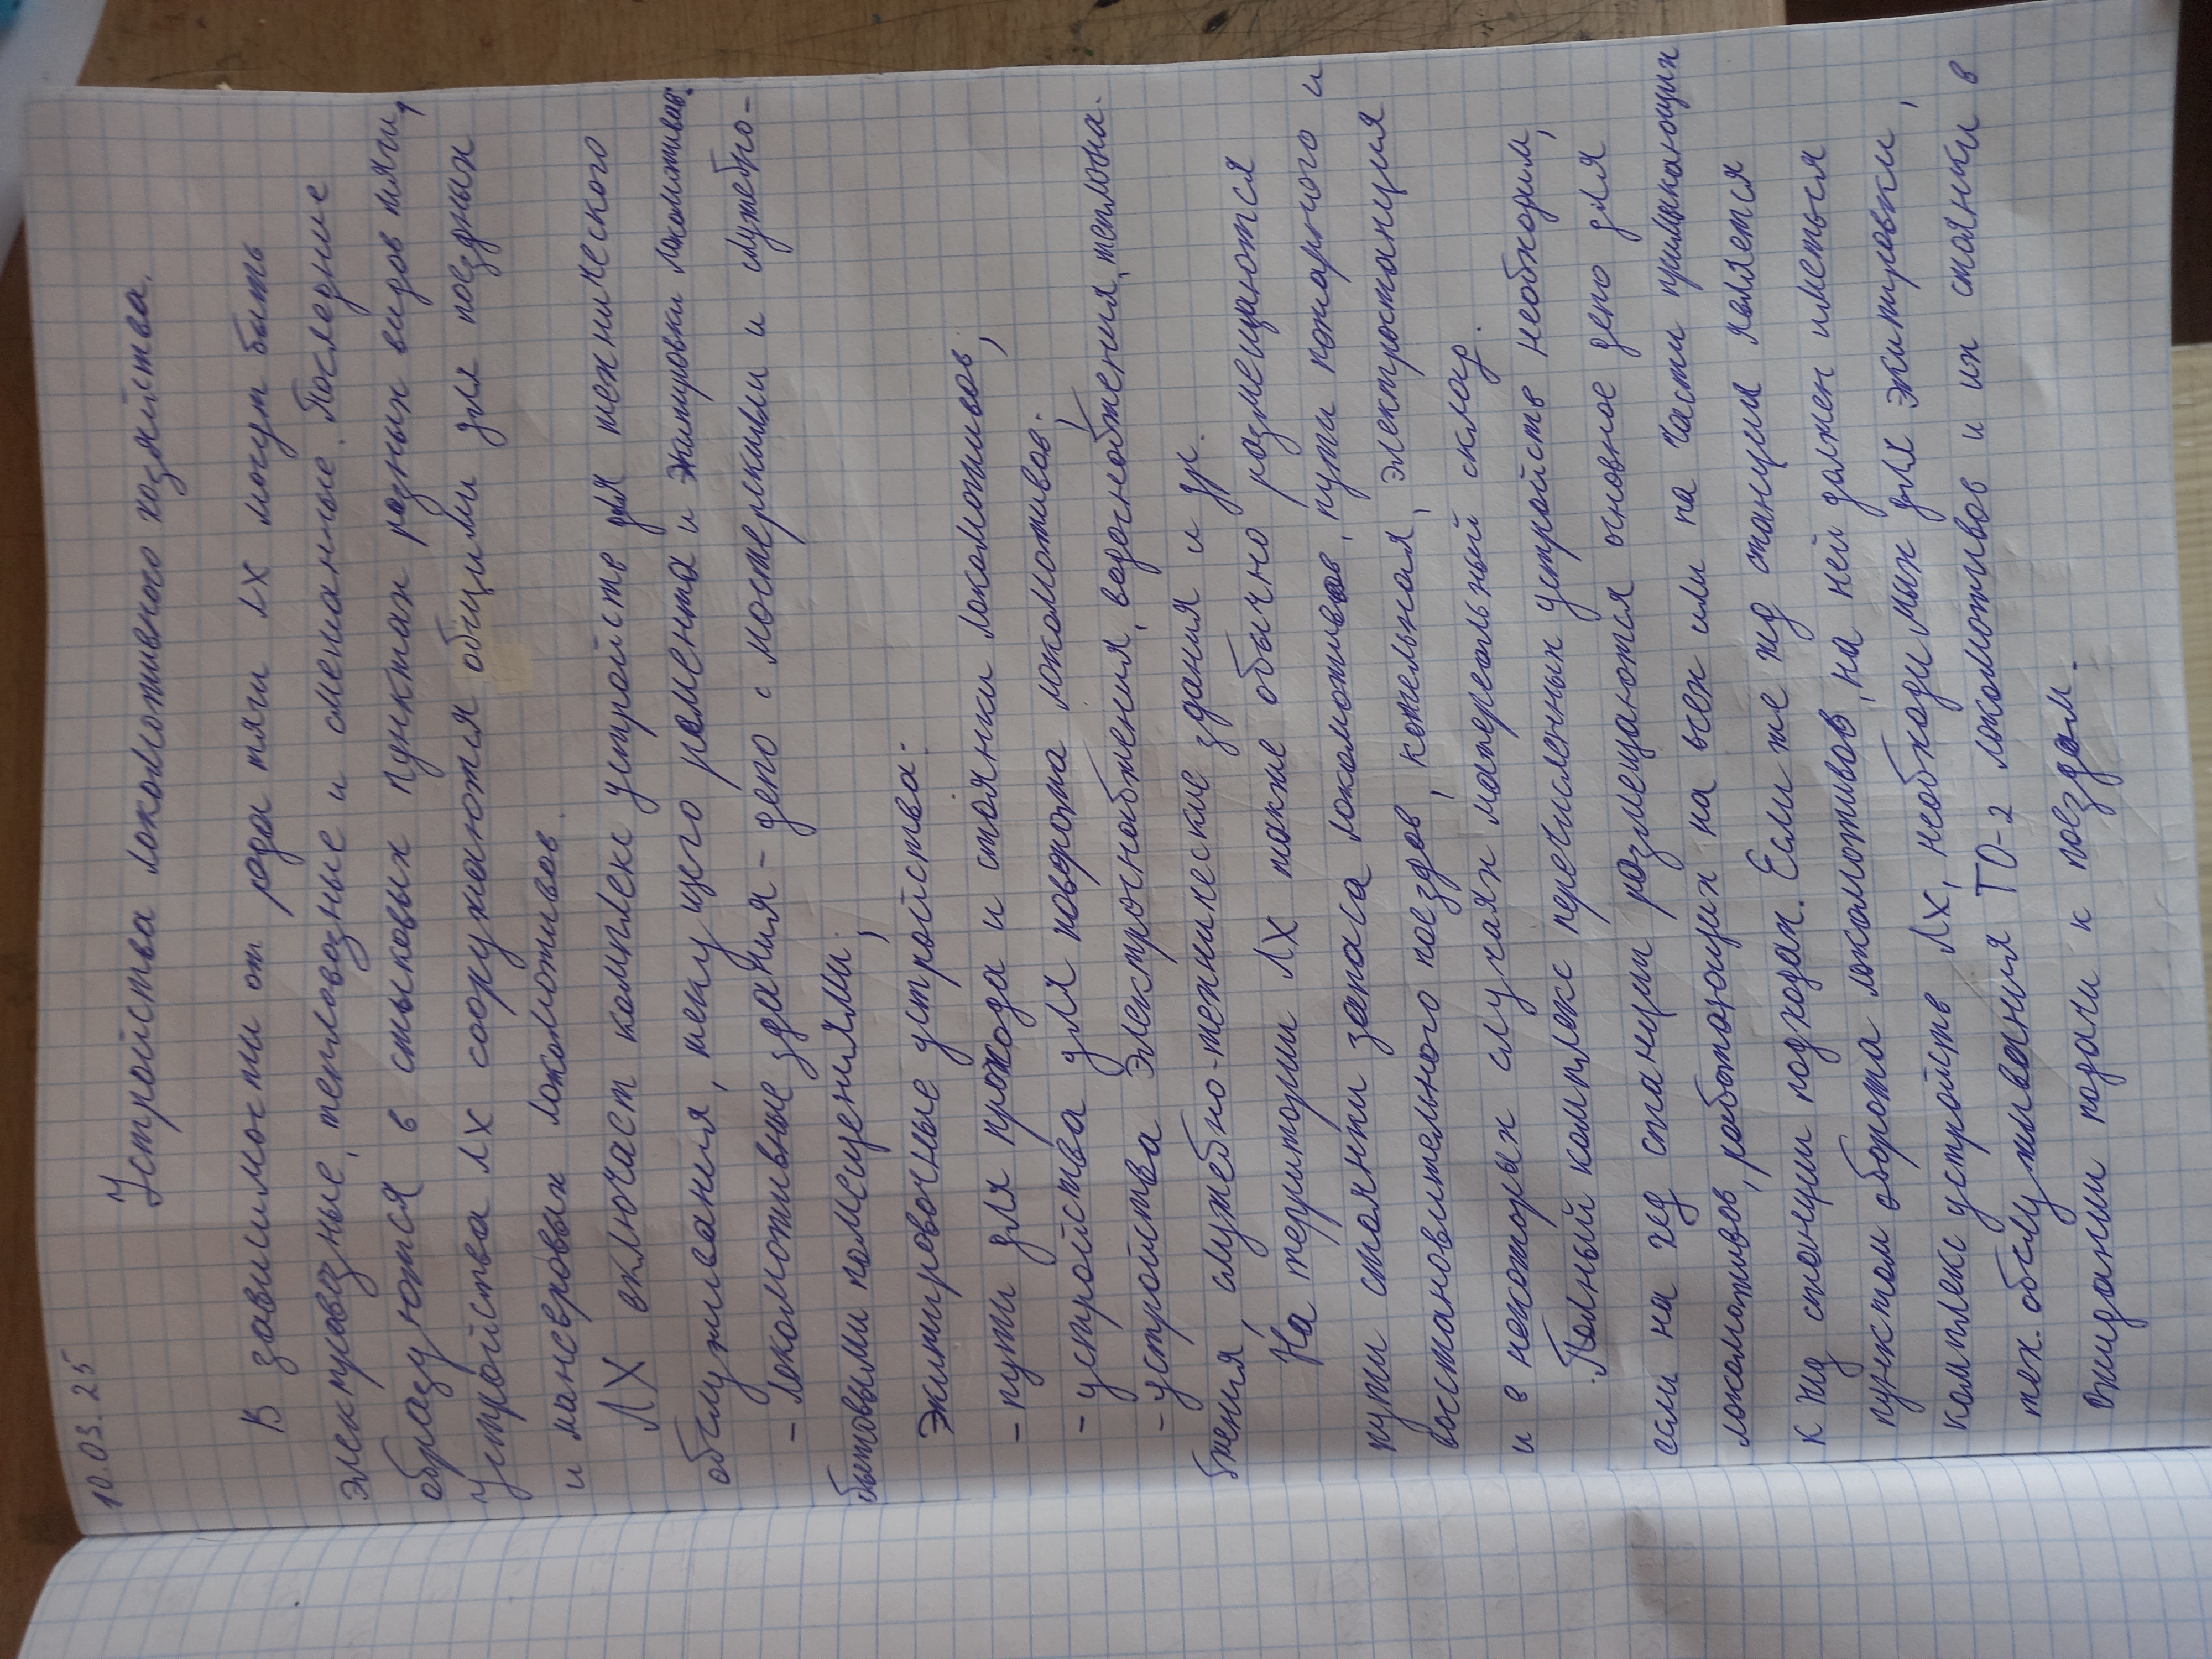 10.03.25
Устройства локомотивного хозяйства.
В зависимости от рода тяги ЛХ могут быть
электровозные, тепловозные и смешанные. Последние
образуются в стыковых пунктах разных видов тяги,
Устройства ЛХ сооружаются общими для поездных
и маневровых локомотивов.
ЛХ включаст комплекс устройств для технического
обслуживания, текущего ремонта и экипировки локомотивов:
- локомотивные здания - депо с мастерскими и служебно-
бытовыми помещениями;
Экипировочные устройства:
- пути для прохода и стоянки локомотивов,
- устройства для поворота локомотивов;
- устройства электроснабжения, водоснабжения, теплосна-
бжения, служебно-технические здания и др.
На территории ЛХ также обычно размещаются
пути стоянки запаса локомотивов, пути пожарного и
восстановительного поездов, котельная, электростанция
и в некоторых случаях материальный склад.
Полный комплекс перечисленных устройств необходим,
если на жд станции размещаются основное депо для
локомотивов, работающих на всех или на части примыкающих
к жд станции подходах. Если же жд станция является
пунктом оборота локомотивов, на ней должен иметься
комплекс устройств ЛХ, необходимых для экипировки,
тех. обслуживания ТО-2 локомотивов и их стоянки в
ожидании подачи к поездам.